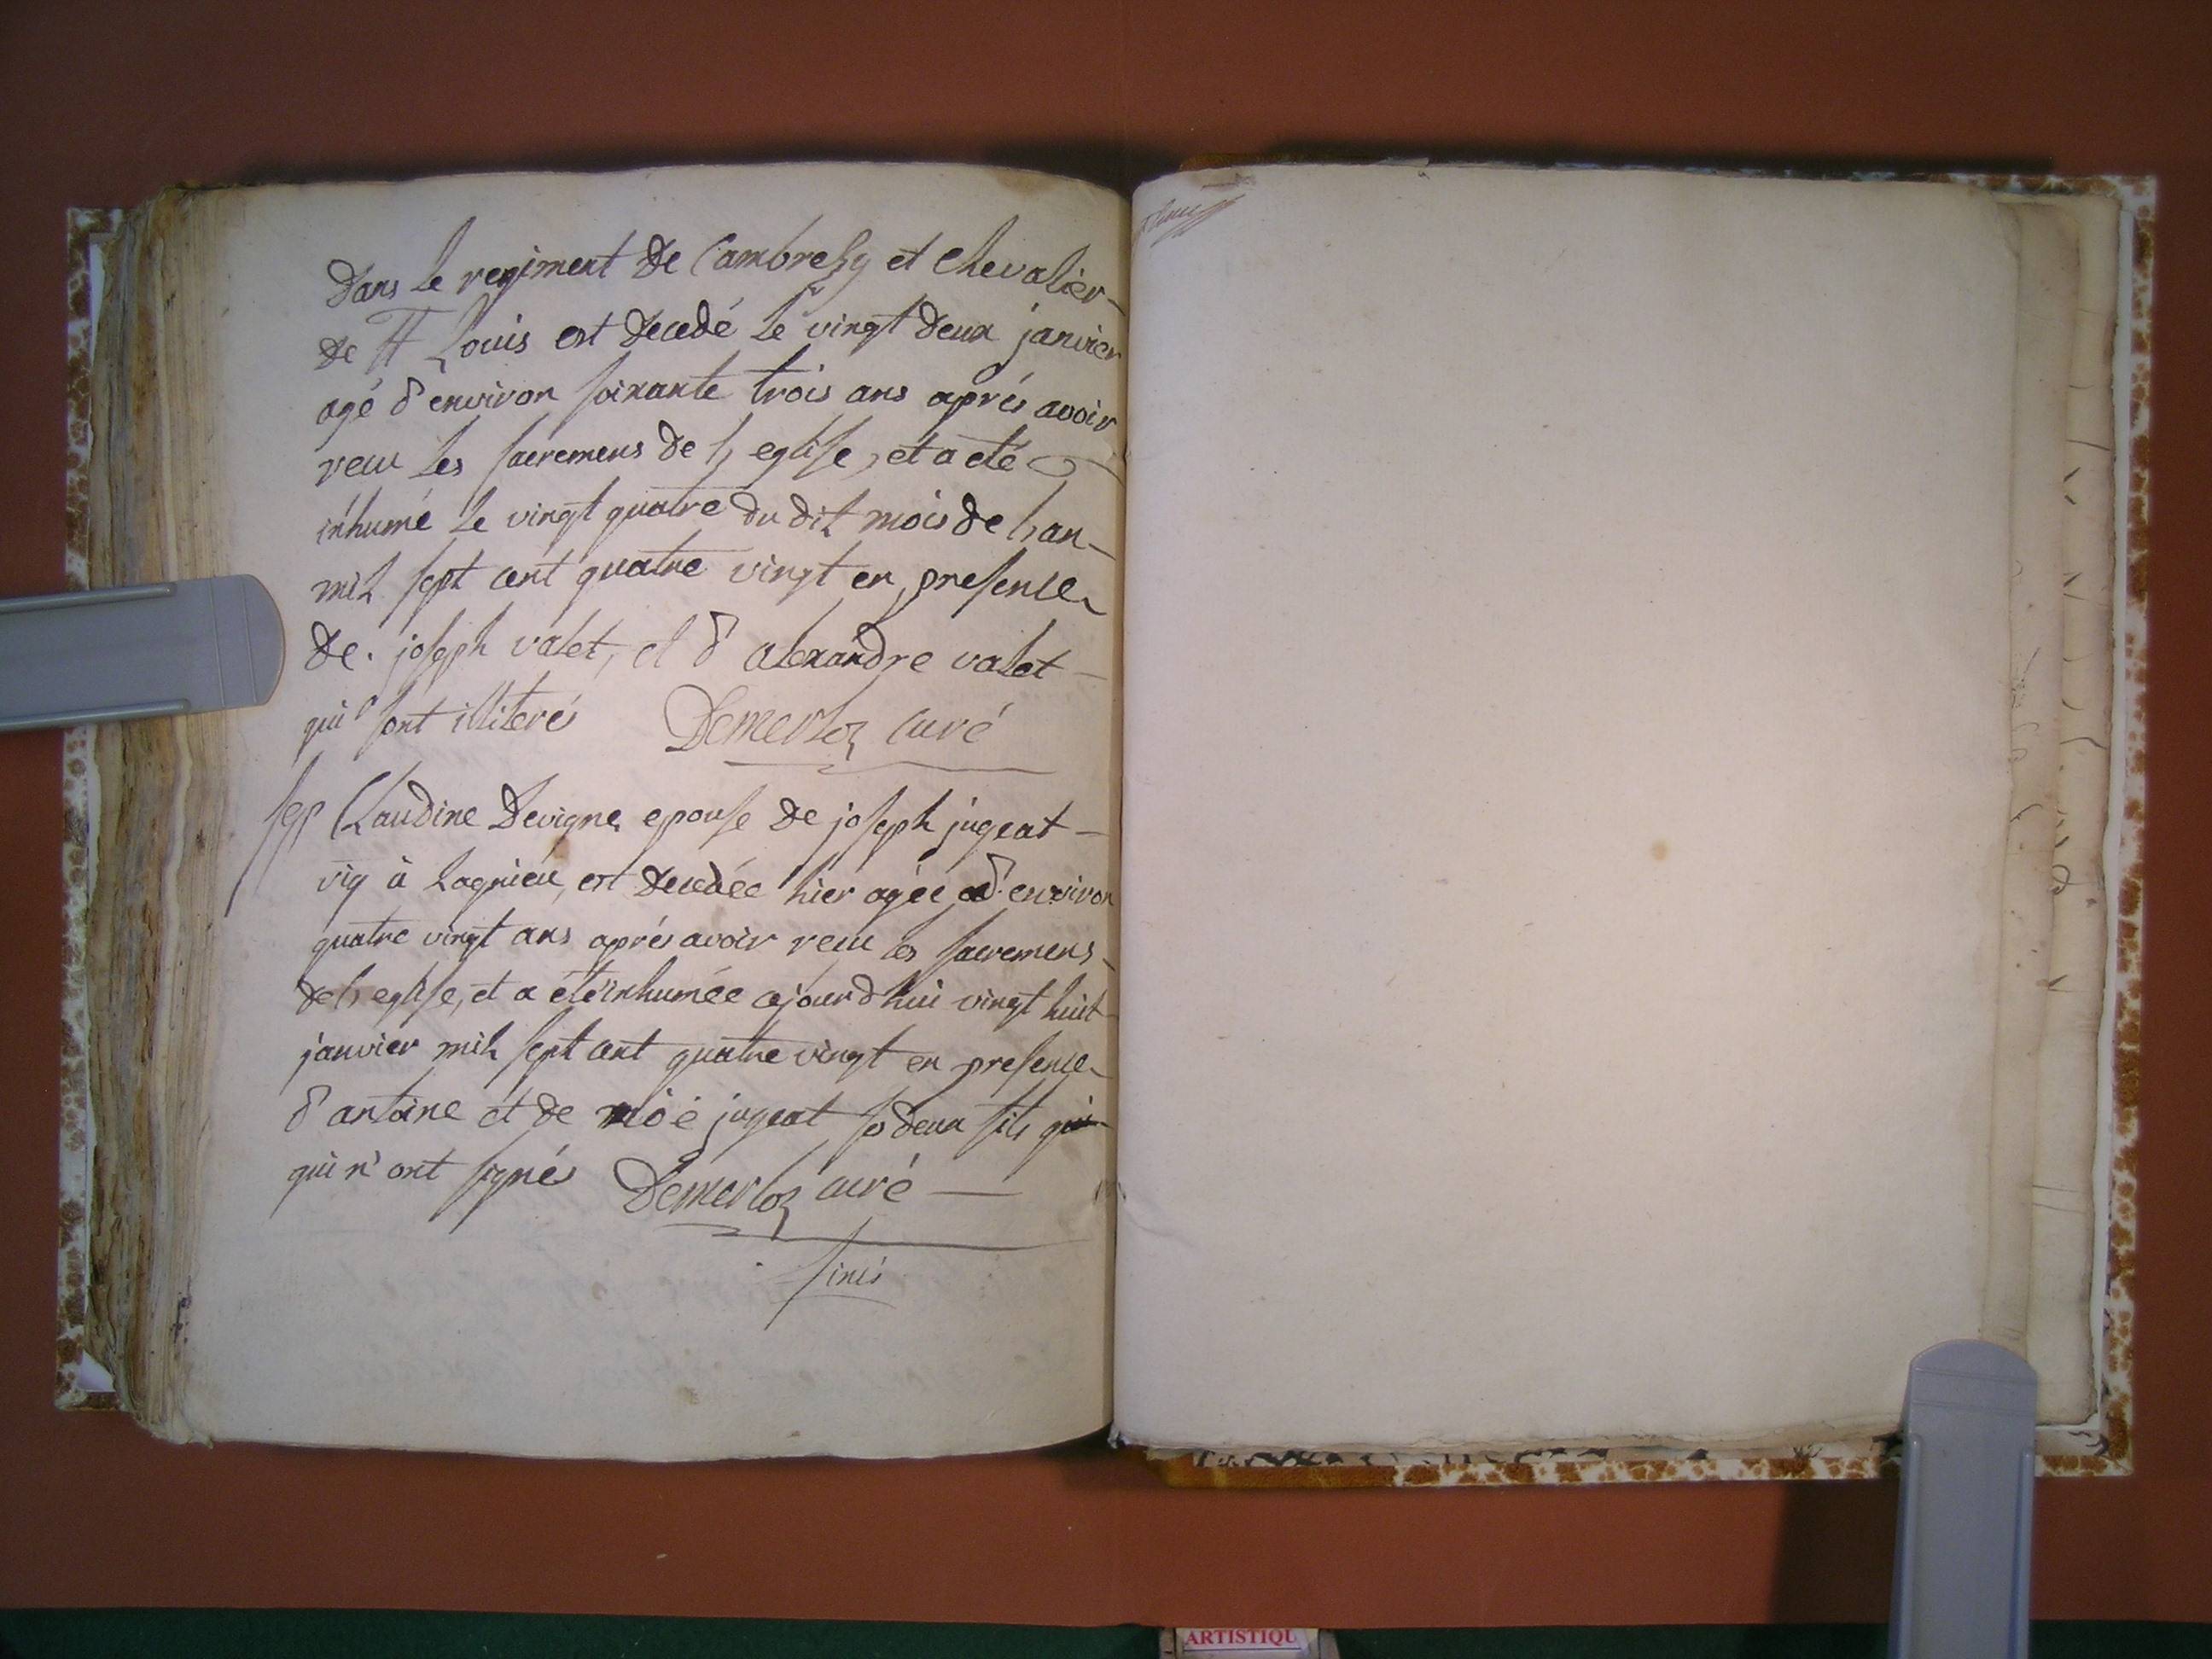 dans le regiment de Cambresy et chevalier
de st Louis est decedé le vingt deux janvier
agé d'environ soixante trois ans aprés avoir
recu les sacremens de l'eglise, et a eté
inhumé le vingt quatre du dit mois de l'an
mil sept cent quatre vingt en presence
de joseph valet, et d'alexandre valet
qui sont illiterés Demerloz curé
sep Claudine Devigne epouse de joseph jugeat
vig à Lagnieu, est decedée hier agée d'environ
quatre vingt ans aprés avoir recu les sacremens
de l'eglise, et a été inhumée ajourdhui vingt huit
janvier mil sept cent quatre vingt en presence
d'antoine et de jugeat ses deux fils qui
qui n'ont signés Demerloz curé
finis
ARTISTIQU